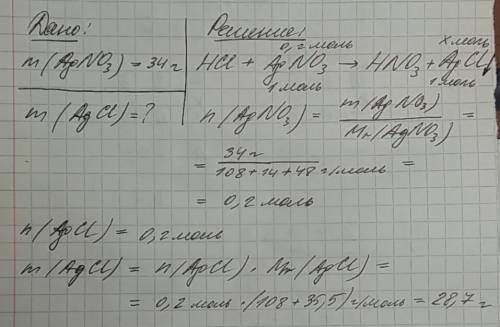 Дано:
m(AgNO₃) = 34 г
m(AgCl) = ?
Решение:
0,2 моль х моль
HCl + AgNO₃ → HNO₃ + AgCl↓
1 моль 1 моль
n(AgNO₃) = m(AgNO₃) / Mr(AgNO₃) =
= 34 г / 108+14+48 г/моль =
= 0,2 моль
n(AgCl) = 0,2 моль
m(AgCl) = n(AgCl) · Mr(AgCl) =
= 0,2 моль · (108 + 35,5) г/моль = 28,7 г